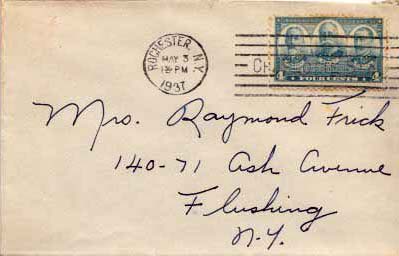 ROCHESTER, N.Y.
MAY 3
1937
4 FOUR CENTS 4
Mrs. Raymond Frick
140-71 Ash Avenue
Flushing
N.Y.